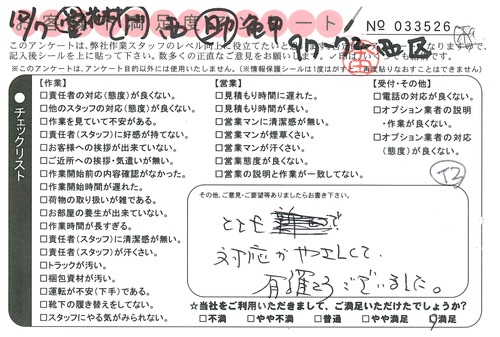 お客様満足度アンケート
No 033526
このアンケートは、弊社作業スタッフのレベル向上に役立てたいと思い
記入後シールを上に貼って下さい。数多くの正直なご意見をお願いします。
※このアンケートは、アンケート目的以外には使用いたしません。(※情報保護シールは1度はが
再度貼りなおすことはできません)
チェックリスト
【作業】
□責任者の対応(態度)が良くない。
□他のスタッフの対応(態度)が良くない。
□作業を見ていて不安がある。
□責任者(スタッフ)に好感が持てない。
□お客様への挨拶が出来ていない。
□ご近所への挨拶・気遣いが無い。
□作業開始前の内容確認がなかった。
□作業開始時間が遅れた。
□荷物の取り扱いが雑である。
□お部屋の養生が出来ていない。
□作業時間が長すぎる。
□責任者(スタッフ)に清潔感が無い。
□責任者(スタッフ)が汗くさい。
□トラックが汚い。
□梱包資材が汚い。
□運転が不安(下手)である。
□靴下の履き替えをしてない。
□スタッフにやる気がみられない。
【営業】
□見積もり時間に遅れた。
□見積もり時間が長い。
□営業マンに清潔感が無い。
□営業マンが煙草くさい。
□営業マンが汗くさい。
□営業態度が良くない。
□営業の説明と作業が一致してない。
【受付・その他】
□電話の対応が良くない。
□オプション業者の説明
・作業が良くない。
□オプション業者の対応
(態度)が良くない。
その他、ご意見・ご要望等ありましたらお書き下さい。
とても
で
対応がやさしくて
有難うございました。
☆当社をご利用いただきまして、ご満足いただけたでしょうか?
□不満 □やや不満 □普通 □やや満足 □満足